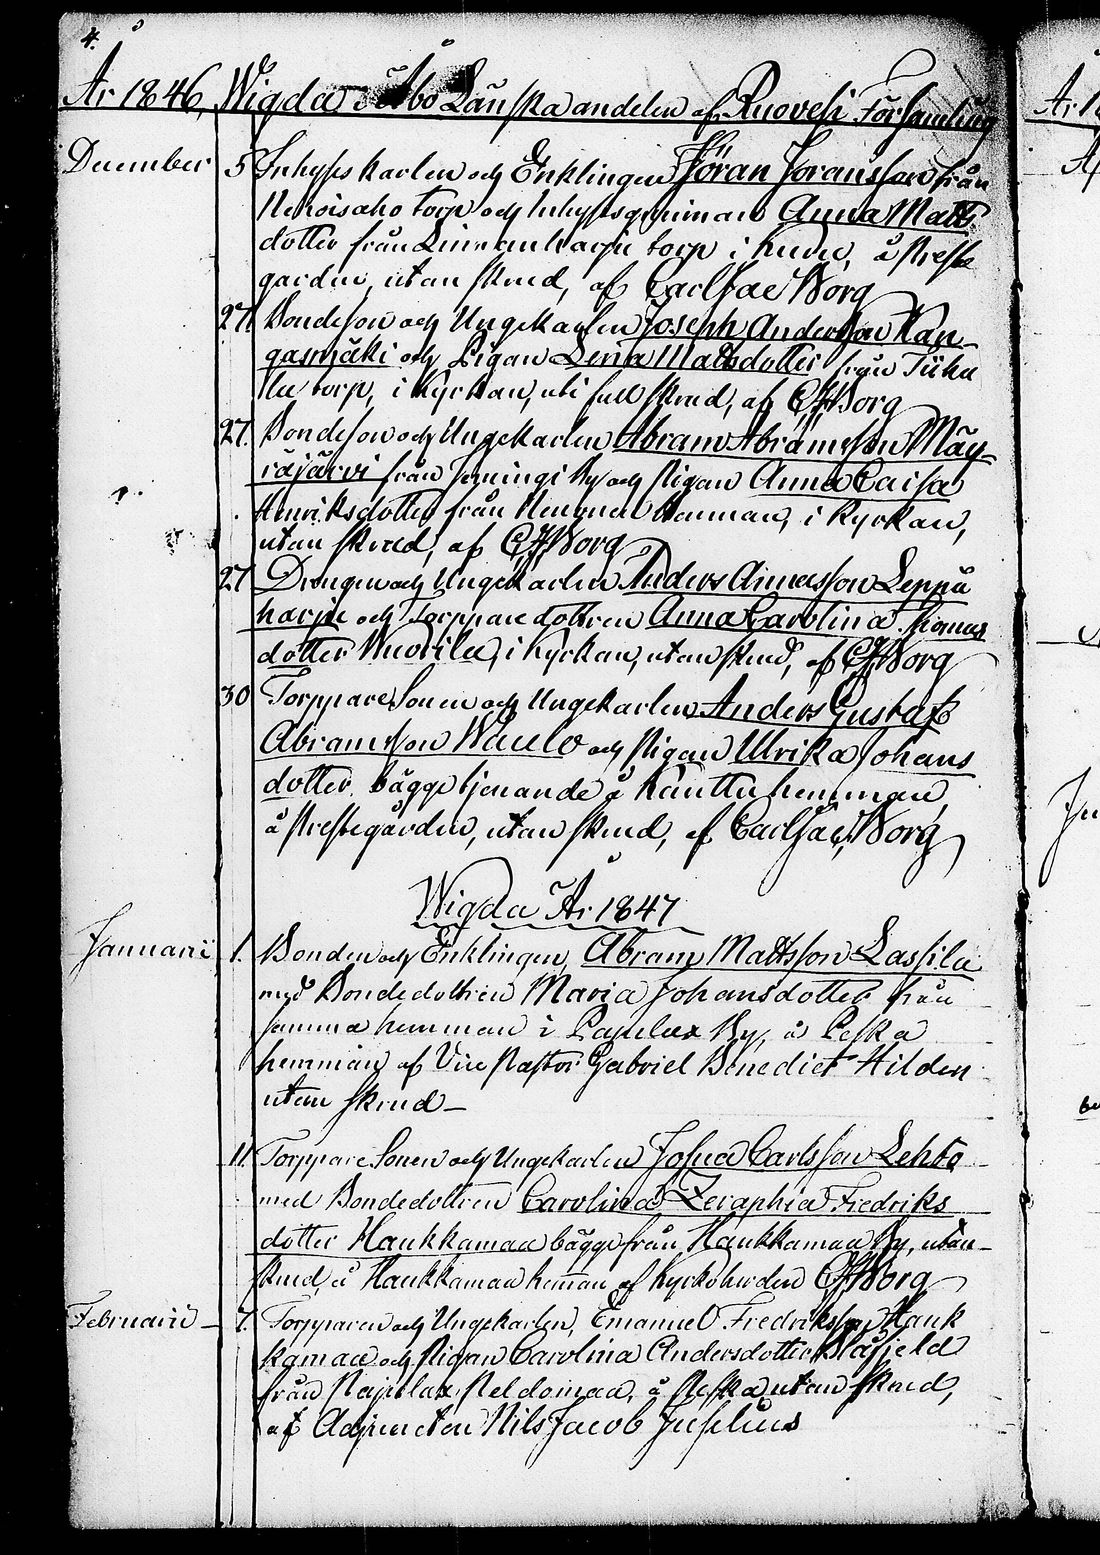 4.
År 1846, Wigda i Åbo Länska andelen af Ruovesi Församling
December 5 Inhyses karlen och Enklingen Jöran Joransson från
torp och Inhysesqvinnan Anna Matts
dotter från torp i kuru, å Preste
gården, utan skrud, af Carl Jac Borg
27. Bondeson och Ungekarlen Joseph Andersson Kan-
gasmäki och Pigan Lena Mattsdotter från
torp, i Kyrkan, uti full skrud, af CJBorg
27. Bondeson och Ungekarlen Abram Abramsson Mäy-
räjärvi från by och Pigan Anna Caisa
Henriksdotter från hemman, i Kyrkan,
utan skrud, af CJBorg
27 Drengen och Ungekarlen Anders Leppä
harju och Torppare dottren Anna Carolina Thomas
dotter Wuorila, i Kyrkan, utan skrud, af CJBorg
30 Torppare Sonen och Ungekarlen Anders Gustaf
Abramsson och Pigan Ulrika Johans
dotter, bägge tjenande å hemman,
å Prestegården, utan skrud, af Carl Jac. Borg
Wigda År 1847
Januarii 1. Bonden och Enklingen, Abram Mattsson Lassila
med Bondedottren Maria Johansdotter från
samma hemman i By, å Peska
hemman af Vice Pastor Gabriel Benedict Hilden
utan skrud –
11. Torppare Sonen och Ungekarlen Josua Carlsson Lehto
med Bondedottren Carolina Zeraphia Fredriks
dotter Haukkamaa bägge från Haukkamaa By, utan
skrud, å Haukkamaa heman af Kyrkoherden CJBorg
Februarii – 7. Torpparen och Ungekarlen, Emanuel Fredriksson Hauk
kamaa och Pigan Carolina Andersdotter Blåfjeld
från å Peska, utan skrud,
af Adjuncten Nils Jacob Juselius